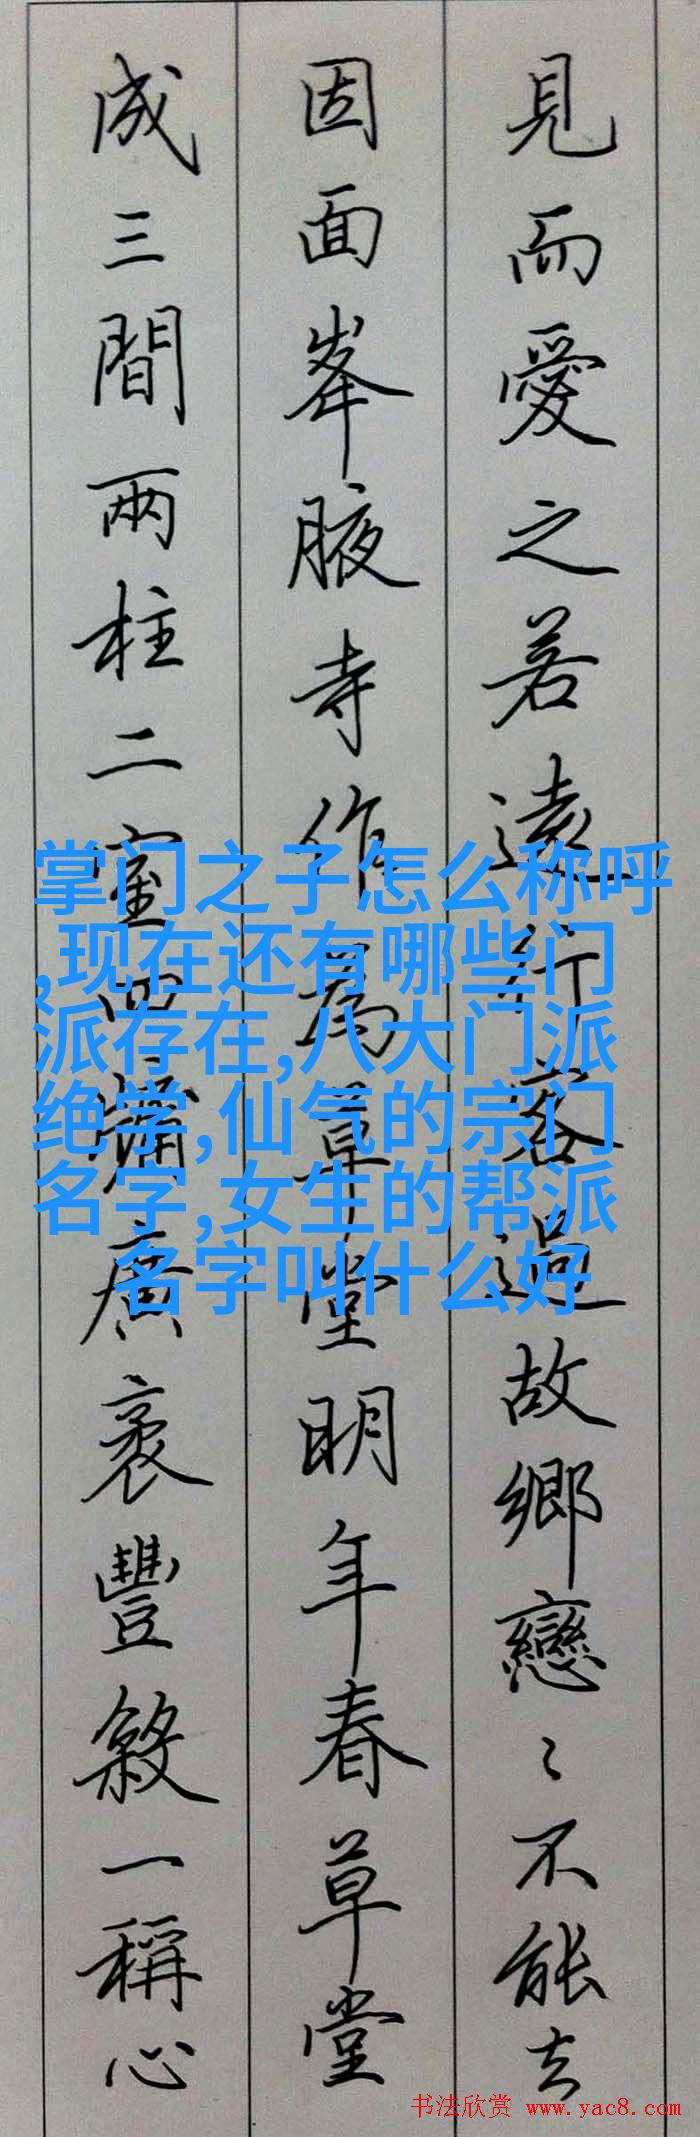 見而愛之若遠行客過故鄉戀〻不能去
因面峯腋寺作為草堂明年春草堂
成三間兩柱二室四牖廣袤豐殺一稱心
掌门之子怎么称呼
,现在还有哪些门
派存在,八大门派
绝学,仙气的宗门
名字,女生的帮派
名字叫什么好
书法欣赏 www.yac8.com